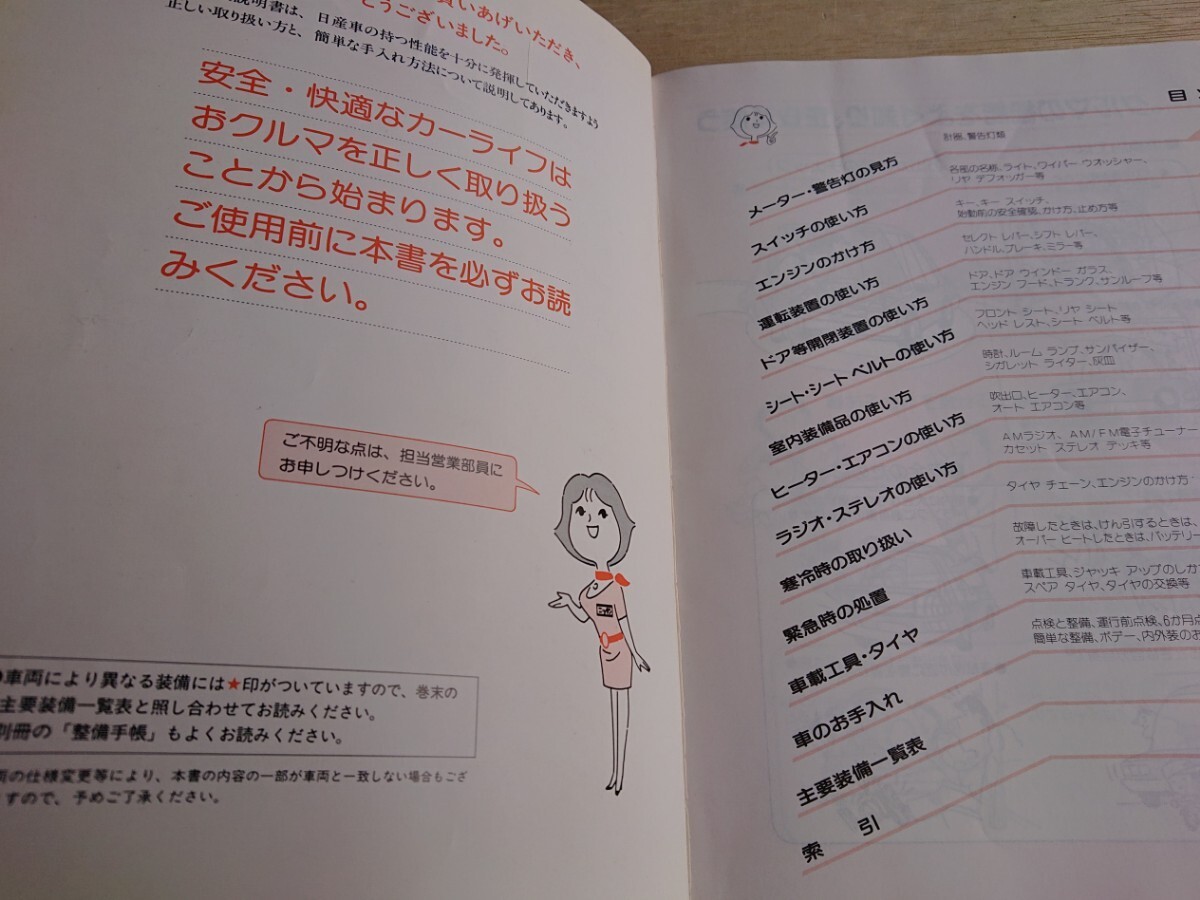 買いあげいただき、
とうございました。
説明書は、日産車の持つ性能を十分に発揮していただきますよう
正しい取り扱い方と、簡単な手入れ方法について説明してあります。
安全・快適なカーライフは
おクルマを正しく取り扱う
ことから始まります。
ご使用前に本書を必ずお読
みください。
ご不明な点は、担当営業部員に
お申しつけください。
車両により異なる装備には★印がついていますので、巻末の
主要装備一覧表と照し合わせてお読みください。
別冊の「整備手帳」もよくお読みください。
の仕様変更等により、本書の内容の一部が車両と一致しない場合もござ
すので、予めご了承ください。
目
メーター・警告灯の見方
計器、警告灯類
スイッチの使い方
各部の名称、ライト、ワイパー ウオッシャー、
リヤ デフォッガー等
エンジンのかけ方
キー、キー スイッチ、
始動前の安全確認、かけ方、止め方等
運転装置の使い方
セレクト レバー、シフト レバー、
ハンドル、ブレーキ、ミラー等
ドア等開閉装置の使い方
ドア、ドア ウインドー ガラス、
エンジン フード、トランク、サンルーフ等
シート・シート ベルトの使い方
フロント シート、リヤ シート
ヘッド レスト、シート ベルト等
室内装備品の使い方
時計、ルーム ランプ、サンバイザー、
シガレット ライター、灰皿
ヒーター・エアコンの使い方
吹出口、ヒーター、エアコン、
オート エアコン等
ラジオ・ステレオの使い方
AMラジオ、AM/FM電子チューナー
カセット ステレオ デッキ等
寒冷時の取り扱い
タイヤ チェーン、エンジンのかけ方
緊急時の処置
故障したときは、けん引するときは、
オーバー ヒートしたときは、バッテリー
車載工具・タイヤ
車載工具、ジャッキ アップのしか
スペア タイヤ、タイヤの交換等
車のお手入れ
点検と整備、運行前点検、6か月点
簡単な整備、ボデー、内外装のお
主要装備一覧表
索 引